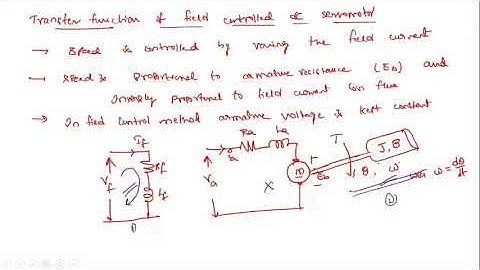 Transfer function of field controlled dc servomotor
→ Speed is controlled by varing the field current
→ Speed is proportional to armature resistance (Eb) and
Inversly proportional to field current (or) flux
→ In field control method armature voltage is kept constant
If
Rf
Lf
Vf
①
Ra
La
ia
Va
X
m
+
Eb
T
J, B
θ, ω
ω = dθ/dt
②